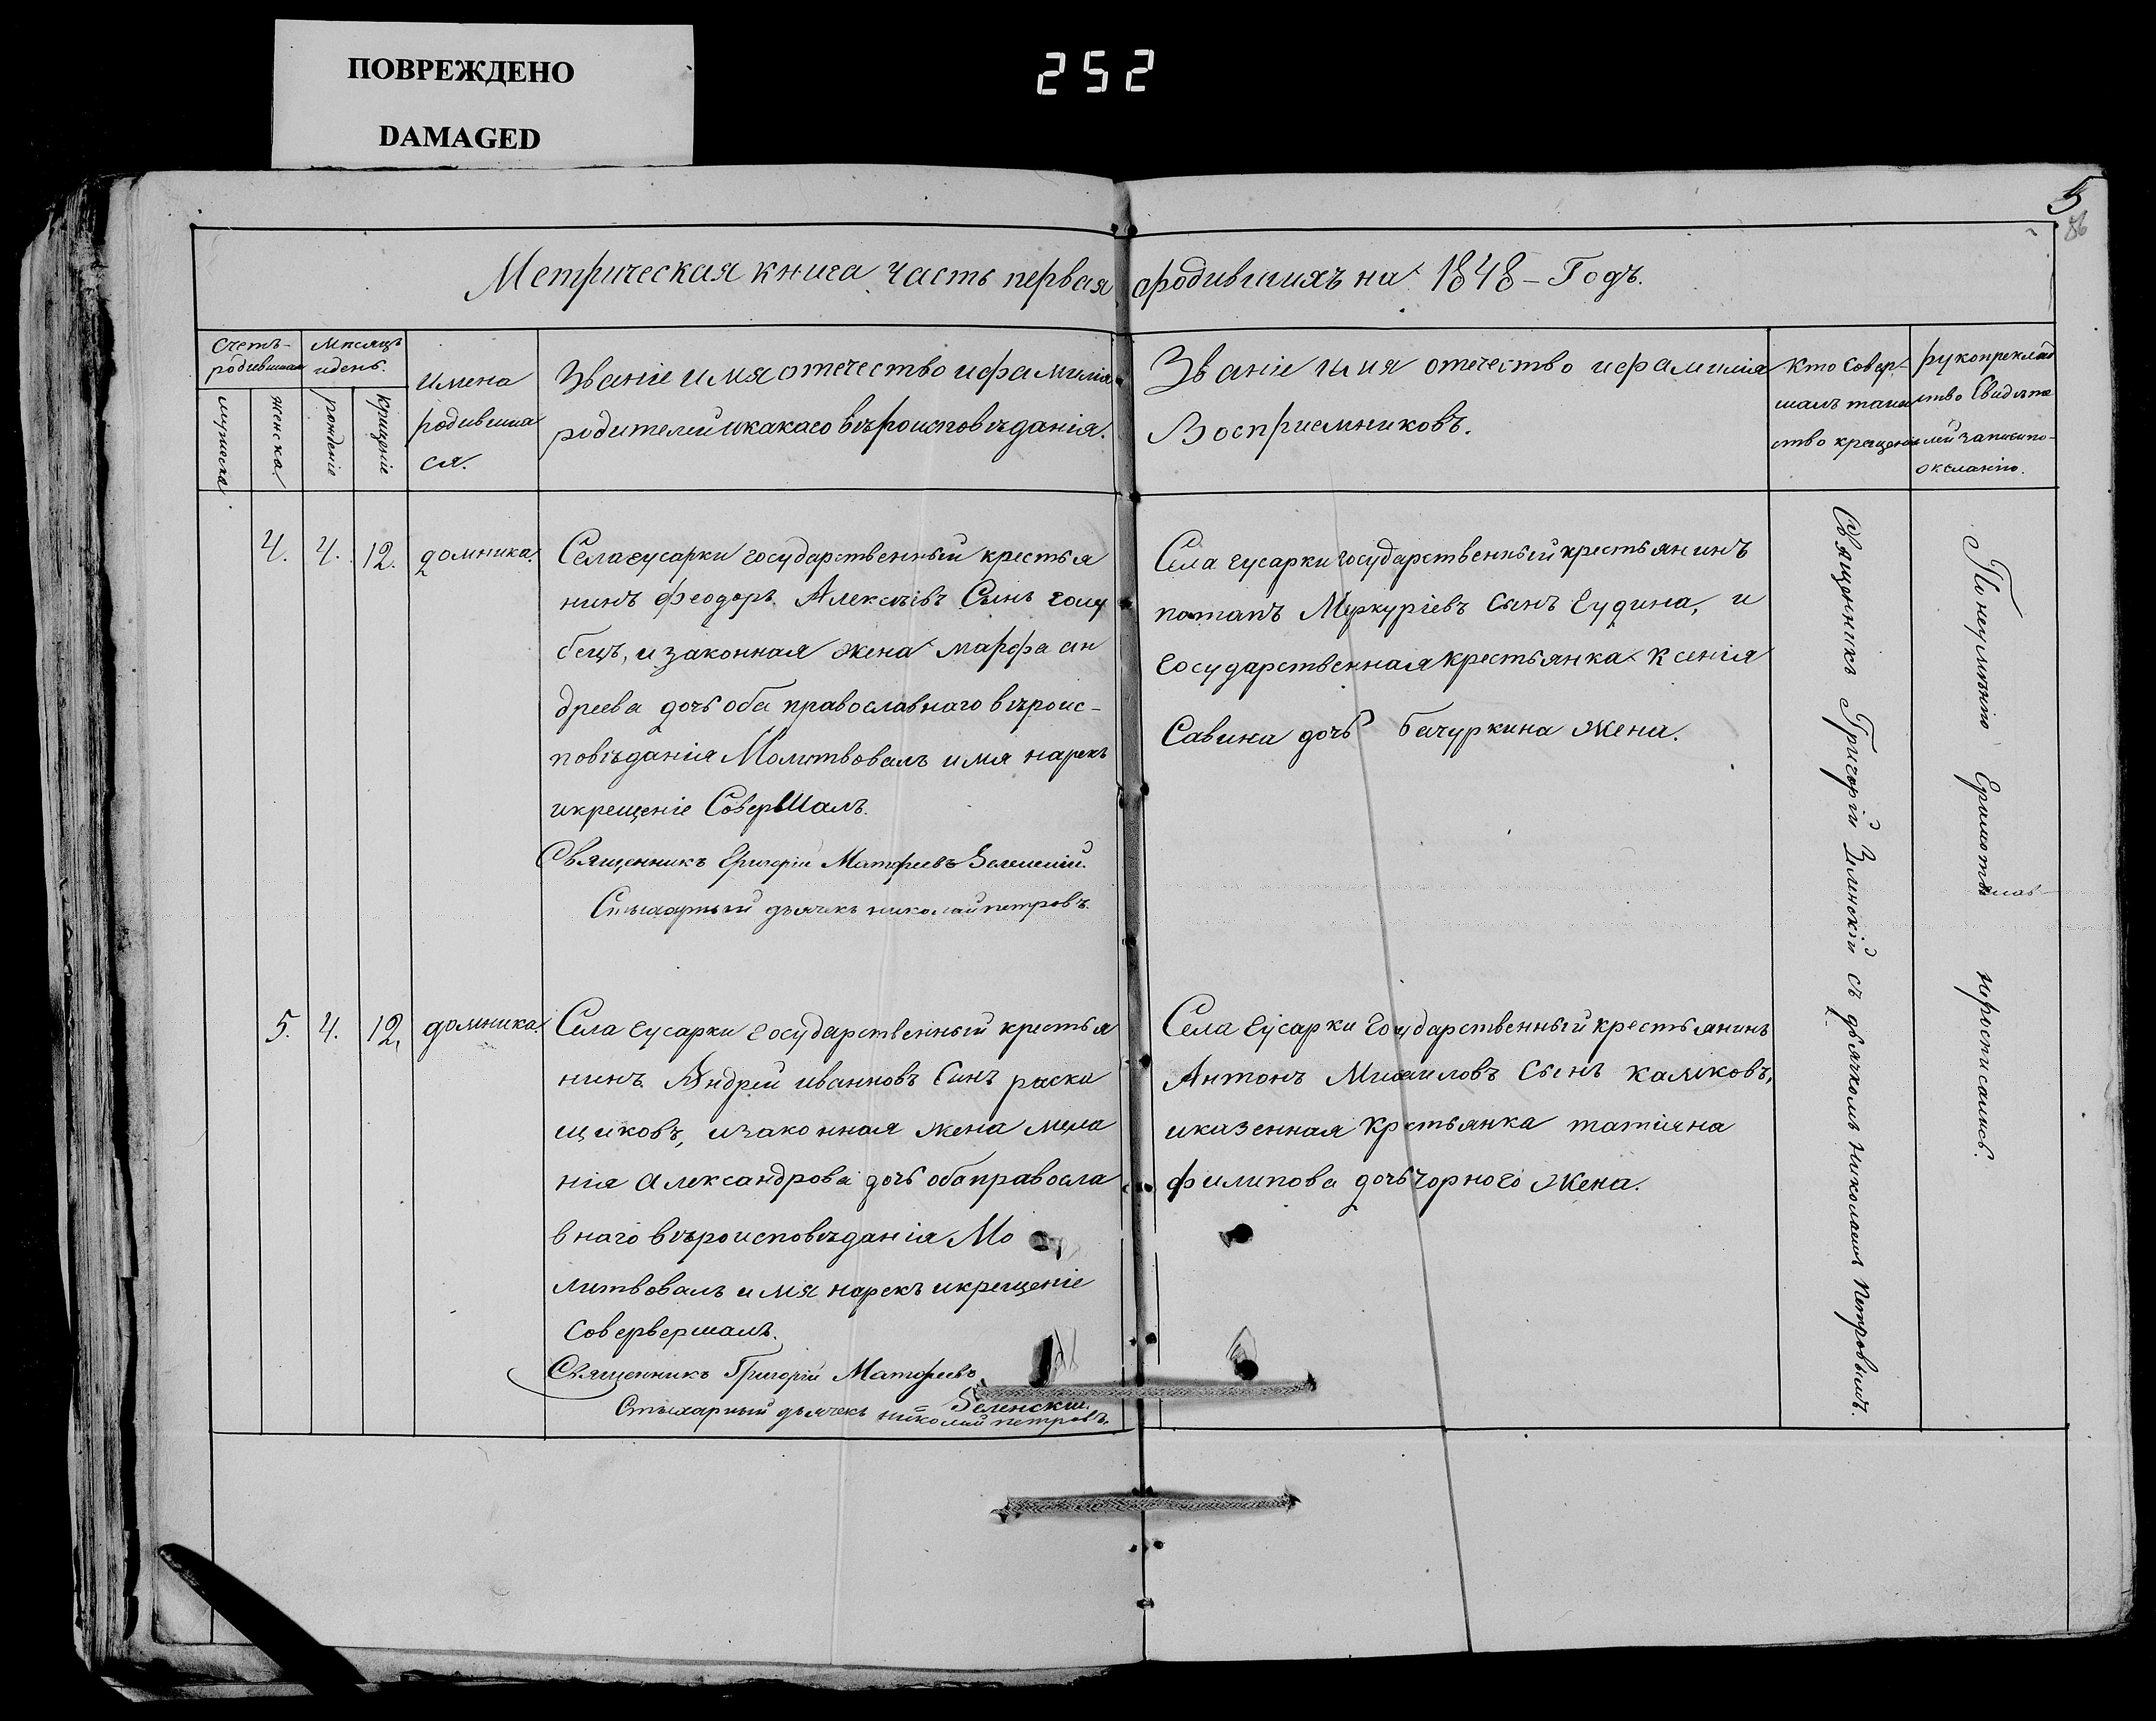 ПОВРЕЖДЕНО
DAMAGED
252
5
86
Метрическая книга часть первая ородившихъ на 1848 – Годъ.
Счетъ
родившихся
Мѣсяцъ
идень.
мужеска
женска
рожденіе
крещеніе
имена
родивша
ся.
Званіе имя отечество ифамилія
родителей икакаго вѣроисповѣданія.
Званіе имя отечество ифамилія
Восприемниковъ.
Кто Совер-
шалъ таин
ство крещенія
рукоприклад
ство Свидѣте
лей записи по-
желанію.
4. 4. 12. домника.
Села гусарки государственный крестья
нинъ феодоръ Алексѣевъ Сынъ голу
бецъ, и законная жена марфа ан
дреева дочь оба православнаго вѣроис-
повѣданія Молитвовалъ имя нарекъ
икрещеніе СоверШалъ.
Священникъ Григорій Матфеевъ Зеленскій.
Стыхарный дьячекъ николай петровъ.
Села гусарки государственный крестьянинъ
потапъ Меркуріевъ сынъ Гудина, и
государственная крестьянка Ксенія
Савина дочь бачуркина жена.
5. 4. 12. домника.
Села гусарки государственный крестья
нинъ Андрей иванновъ Сынъ раска
щиковъ, изаконная жена мела
нія александрова дочь оба правосла
внаго вѣроисповѣданія Мо
литвовалъ имя нарекъ икрещеніе
совервершалъ.
Священникъ Григорій Матфеевъ
Зеленскій.
Стыхарный дьячекъ николай петровъ.
Села гусарки государственный крестьянинъ
Антонъ Михаиловъ сынъ камковъ,
иказенная крстьянка татияна
филипова дочь чорного жена.
Священникъ Григорій Зеленскій съ дьячкомъ николаемъ петровымъ.
По неумѣнію Грамотѣ неросписались.